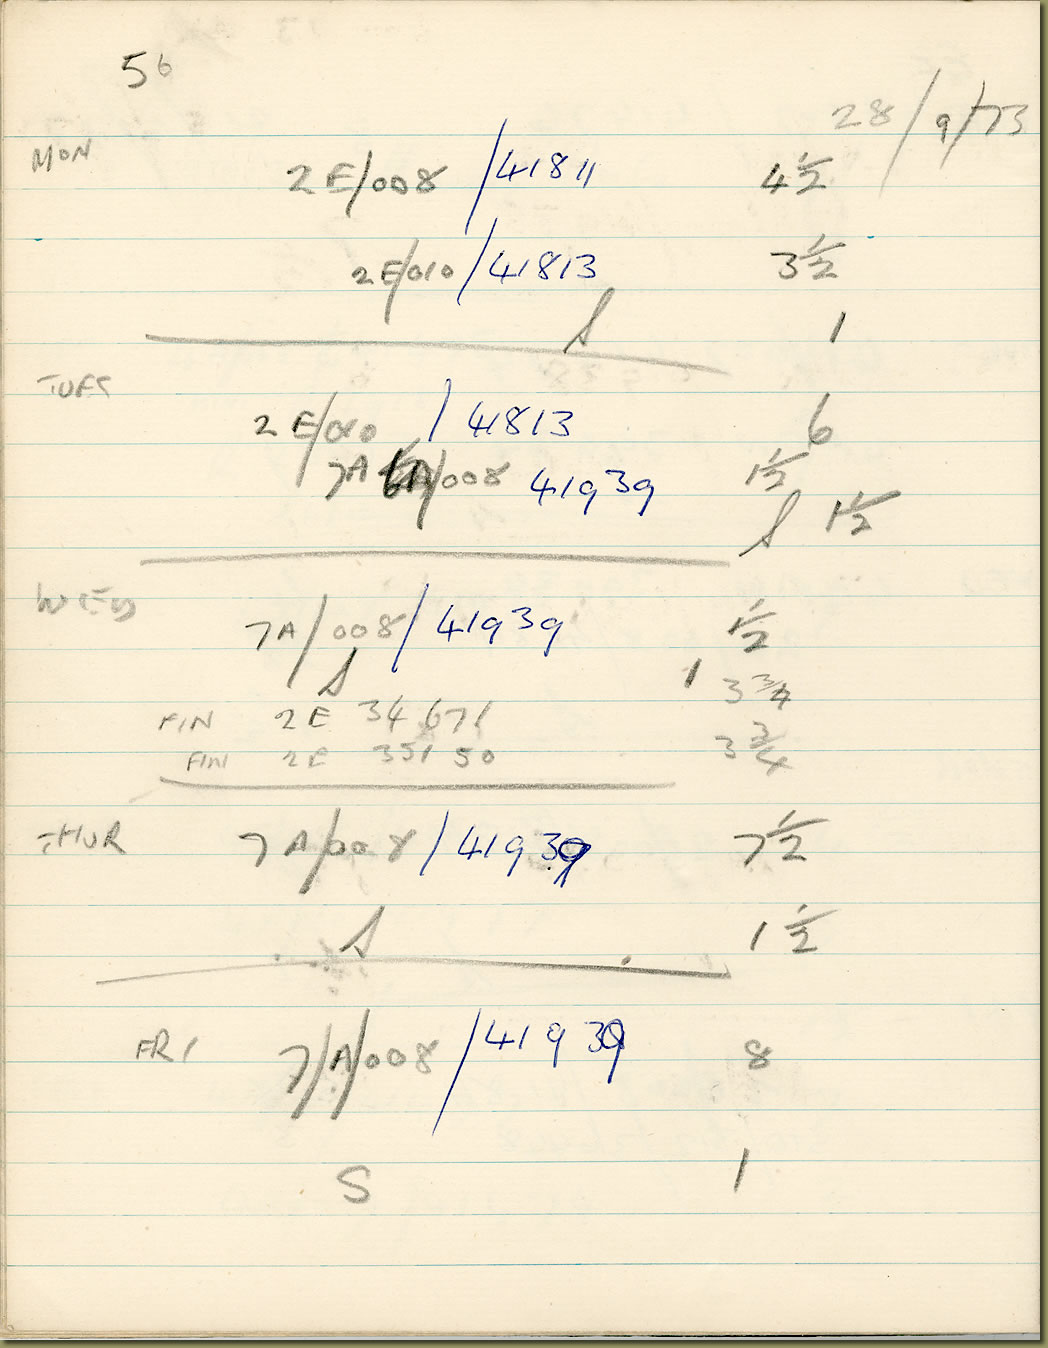 56
28/9/73
MON 2E/008 /41811 4½
2E/010 /41813 3½
S 1
TUES 2E/010 /41813 6
7A /008 41939 1½
S 1½
WED 7A/008/41939 ½
S 1
FIN 2E 34671 3¾
FIN 2E 35150 3¾
THUR 7A/008/41939 7½
S 1½
FRI 7/A/008/41939 8
S 1